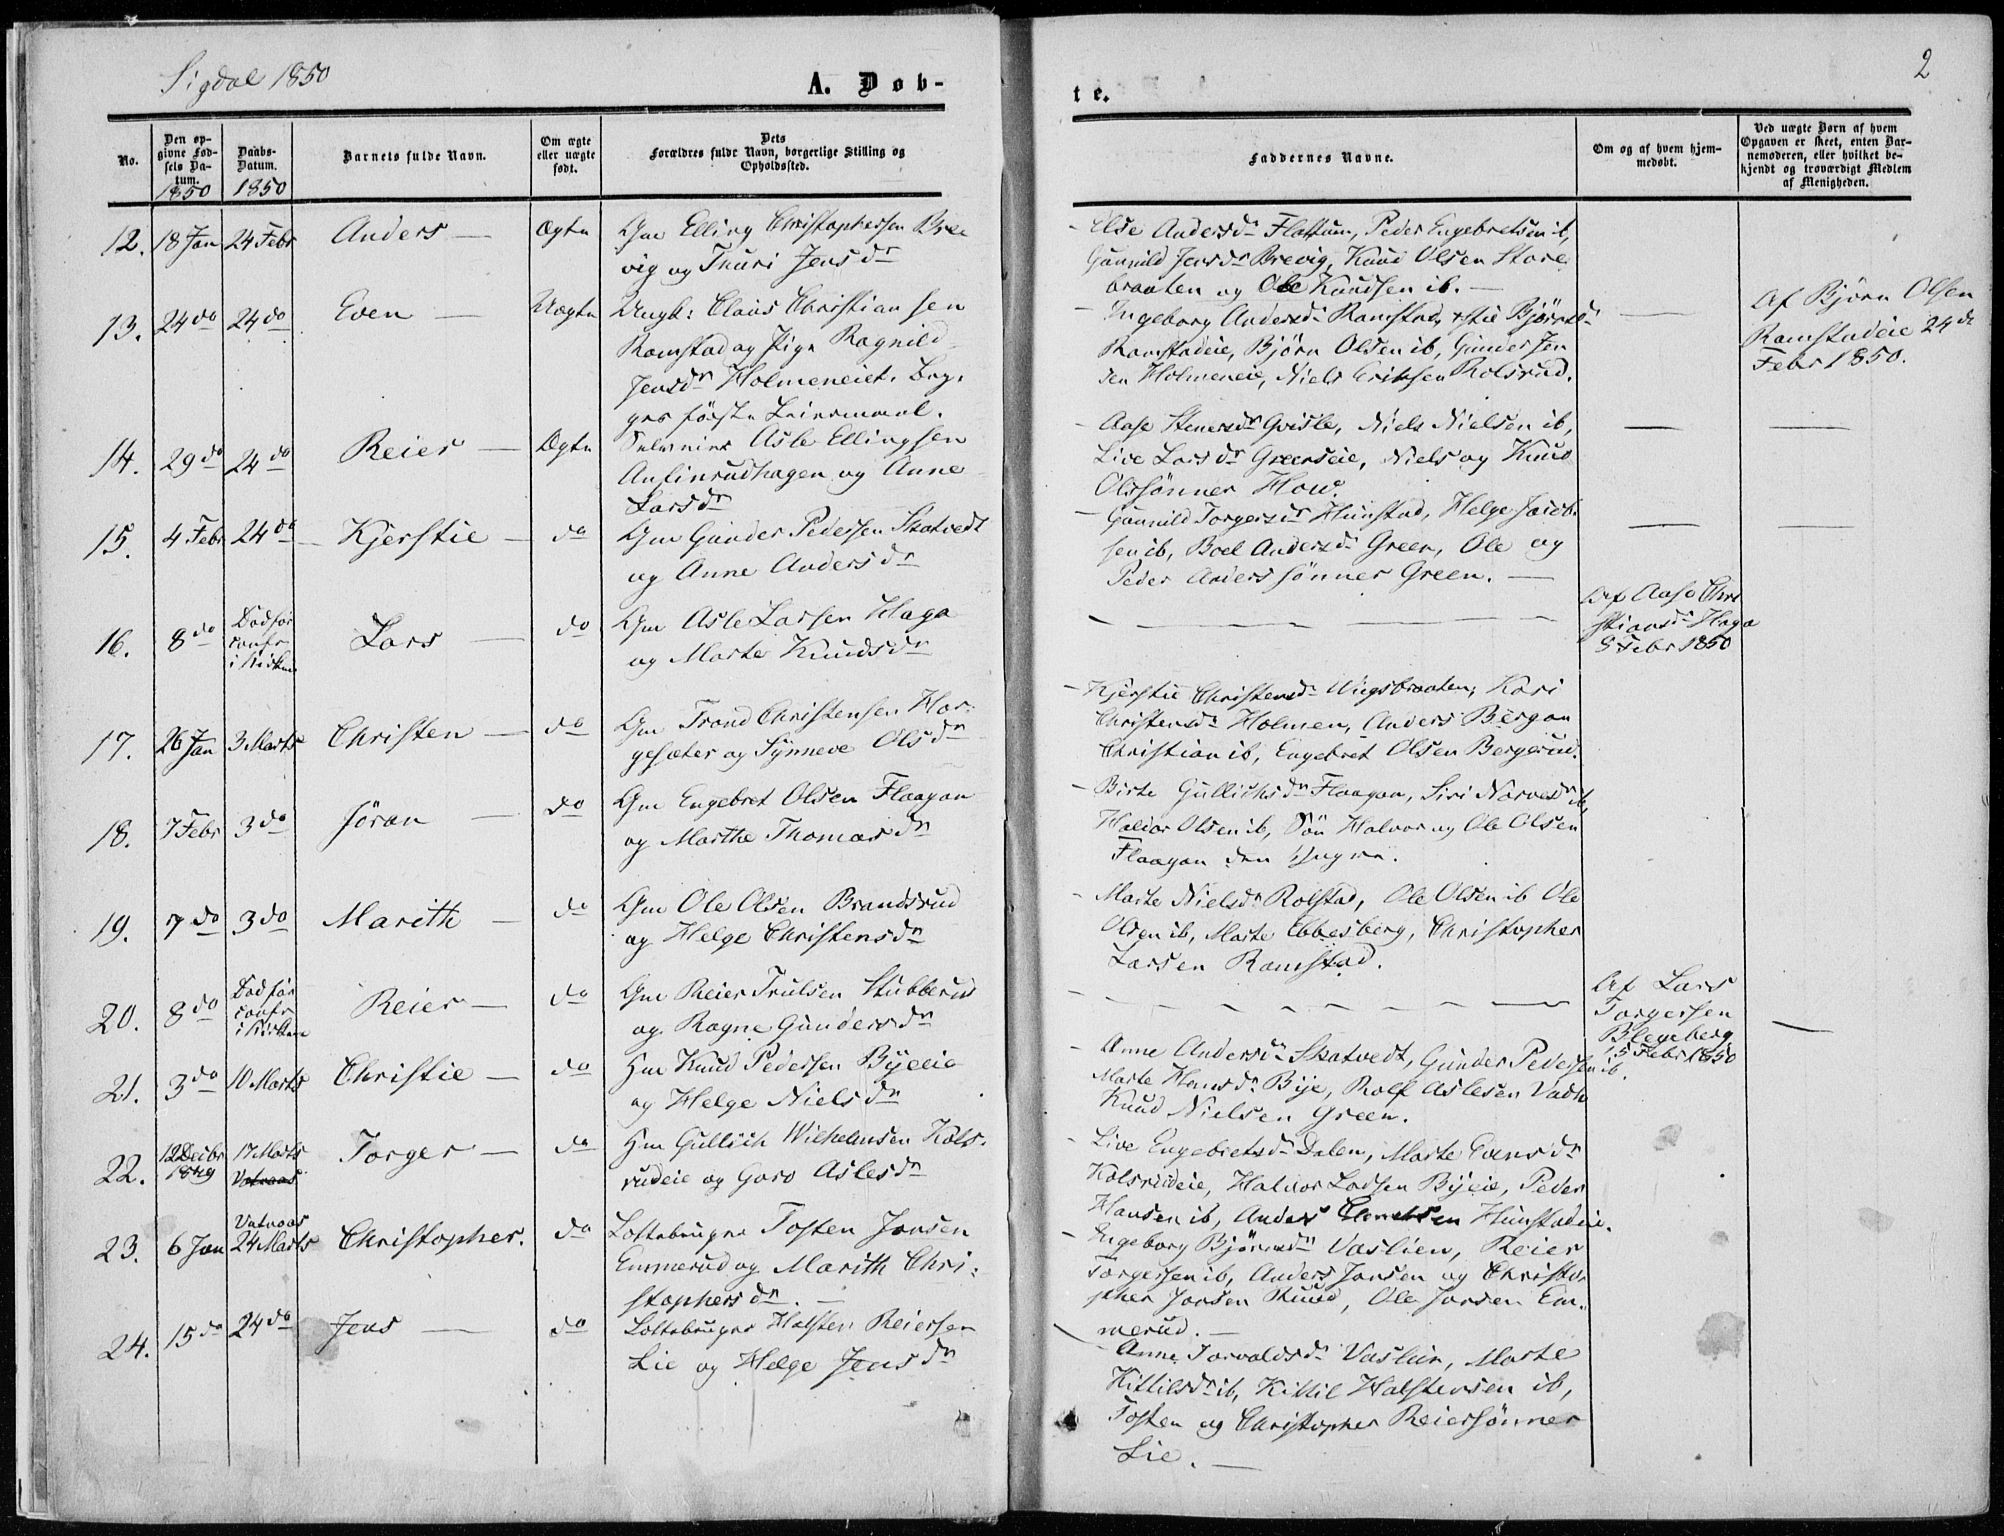 Sigdal 1850
A. Døb-
No.
Den op-
givne Fød-
sels Da-
tum.
1850
Daabs-
Datum.
1850
Barnets fulde Navn.
Om ægte
eller uægte
født.
Dets
Forældres fulde Navn, borgerlige Stilling og
Opholdssted.
12. 18 Jan 24 Febr Anders — Ægte Gm Elling Christophersen Bree
vig og Thuri Jensdr
13. 24 do 24 do Even — Uægte Ungk: Claus Christiansen
Ramstad og Pige Ragnild
Jensdr Holmeneiet. Beg-
ges første Leiermaal.
14. 29 do 24 do Reier — Ægte Selveier Asle Ellingsen
Anfinrudhagen og Anne
Larsdr
15. 4 Febr 24 do — Kjerstie — do Gm Gunder Pedersen Skatvedt
og Anne Andersdr
16. 8 do Død før
confr
i Kirken Lars — do Gm Asle Larsen Haga
og Marte Knudsdr
17. 26 Jan 3 Marts Christen — do Gm Trond Christensen Hor-
gesæter og Synneve Olsdr
18. 7 Febr 3 do Jøran — do Gm Engebret Olsen Flaagan
og Marthe Thomasdr
19. 7 do 3 do Marith — do Gm Ole Olsen Brandsrud
og Helge Christensdr
20. 8 do Død før
confr
i Kirken Reier — do Gm Reier Trulsen Stubberud
og Ragne Gundersdr
21. 3 do 10 Marts Christie — do Hm Knud Pedersen Byeeie
og Helge Nielsdr
22. 12 Decbr
1849 17 Marts
Vatnaas Torger — do Hm Gullich Wilhelmsen Kols-
rudeie og Goro Aslesdr
23. 6 Jan Vatnaas
24 Marts Christopher. do Lottebruger Tosten Jonsen
Emmerud og Marith Chri-
stophersdr. —
24. 15 do 24 do Jens — do Lottebruger Halsten Reiersen
Lie og Helge Jensdr
2
te.
Faddernes Navne.
Om og af hvem hjem-
medøbt.
Ved uægte Børn af hvem
Opgaven er skeet, enten Bar-
nemoderen, eller hvilket be-
kjendt og troværdigt Medlem
af Menigheden.
— Else Andersdr Flattum, Peder Engebretsen ib,
Gunnild Jensdr Brevig, Knud Olsen Store
braaten og Ole Knudsen ib. —
— Ingeborg Andersdr Ramstad, Bjørnsdr
Ramstadeie, Bjørn Olsen ib, Gunder Jen
sen Holmeneie, Niels Eriksen Kolsrud.
Af Bjørn Olsen
Ramstadeie 24 de
Febr 1850.
— Aase Stenersdr Grisle, Niels Nielsen ib,
Live Larsdr Greenseie, Niels og Knud
Olssønner How.
— Gunnild Torgersdr Hunstad, Helge Jacob-
sen ib, Boel Andersdr Green, Ole og
Peder Anderssønner Green. —
Af Aase Chri
stiansdr Haga
9 Febr 1850
— Kjerstie Christensdr Wiigsbraaten, Kari
Christensdr Holmen, Anders Bergan
Christian ib, Engebret Olsen Bergerud.
— Birte Gullichsdr Flaagan, Siri Narvesdr ib,
Halvor Olsen ib, Søn Halvor og Ole Olsen
Flaagan den Yngre.
— Marte Nielsdr Rolstad, Ole Olsen ib Ole
Olsen ib, Marte Ebbesberg, Christopher
Larsen Ramstad.
Af Lars
Torgersen
Blegeberg
15 Febr 1850
— Anne Andersdr Skatvedt, Gunder Pedersen ib.
Marte Hansdr Bye, Rolf Aslesen
Knud Nielsen Green.
— Live Engebretsdr Dalen, Marte Evensdr
Kolsrudeie, Halvor Ladsen Byeie, Peder
Hansen ib, Anders Hunstadeie.
— Engeborg Bjørnsdr Vaslien, Reier
Torgersen ib, Anders Jonsen og Christo-
pher Jonsen Ruud, Ole Jonsen Em-
merud. —
— Anne Torvaldsdr Vaslien, Marte
Kittilsdr ib, Kittil Halstensen ib,
Tosten og Christopher Reiersønner
Lie. —